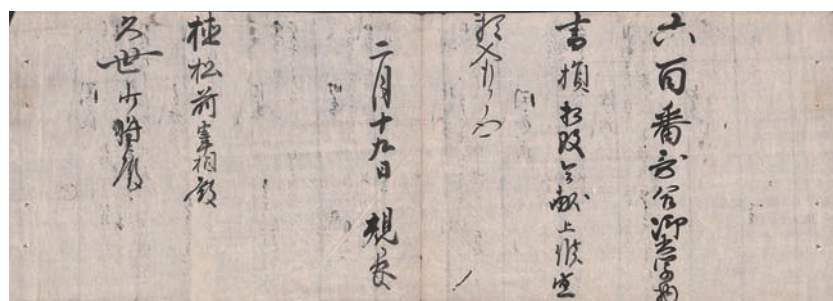 六百番歌合御書写
書損相改令献上候也
二月十九日 親長
植松前宰相殿
久世少将殿